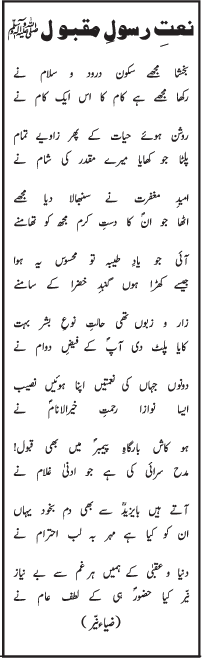 نعتِ رسولِ مقبول ﷺ
بخشا مجھے سکون درود و سلام نے
رکھا مجھے ہے کام کا اس ایک کام نے
روشن ہوئے حیات کے پھر زاویے تمام
پلٹا جو کھایا میرے مقدر کی شام نے
امیدِ مغفرت نے سنبھالا دیا مجھے
اٹھا جو انؐ کا دستِ کرم مجھ کو تھامنے
آئی جو یادِ طیبہ تو محسوس یہ ہوا
جیسے کھڑا ہوں گنبدِ خضرا کے سامنے
زار و زبوں تھی حالتِ نوعِ بشر بہت
کایا پلٹ دی آپؐ کے فیضِ دوام نے
دونوں جہاں کی نعمتیں اپنا ہوئیں نصیب
ایسا نوازا رحمتِ خیرالانامؐ نے
ہو کاش بارگاہِ پیمبرؐ میں بھی قبول!
مدح سرائی کی ہے جو ادنیٰ غلام نے
آتے ہیں بایزیدؒ سے بھی دم بخود یہاں
ان کو کیا ہے مہر بہ لب احترام نے
دنیا و عقبیٰ کے ہمیں ہر غم سے بے نیاز
نیّر کیا حضورؐ ہی کے لطفِ عام نے
(ضیاء نیّر)